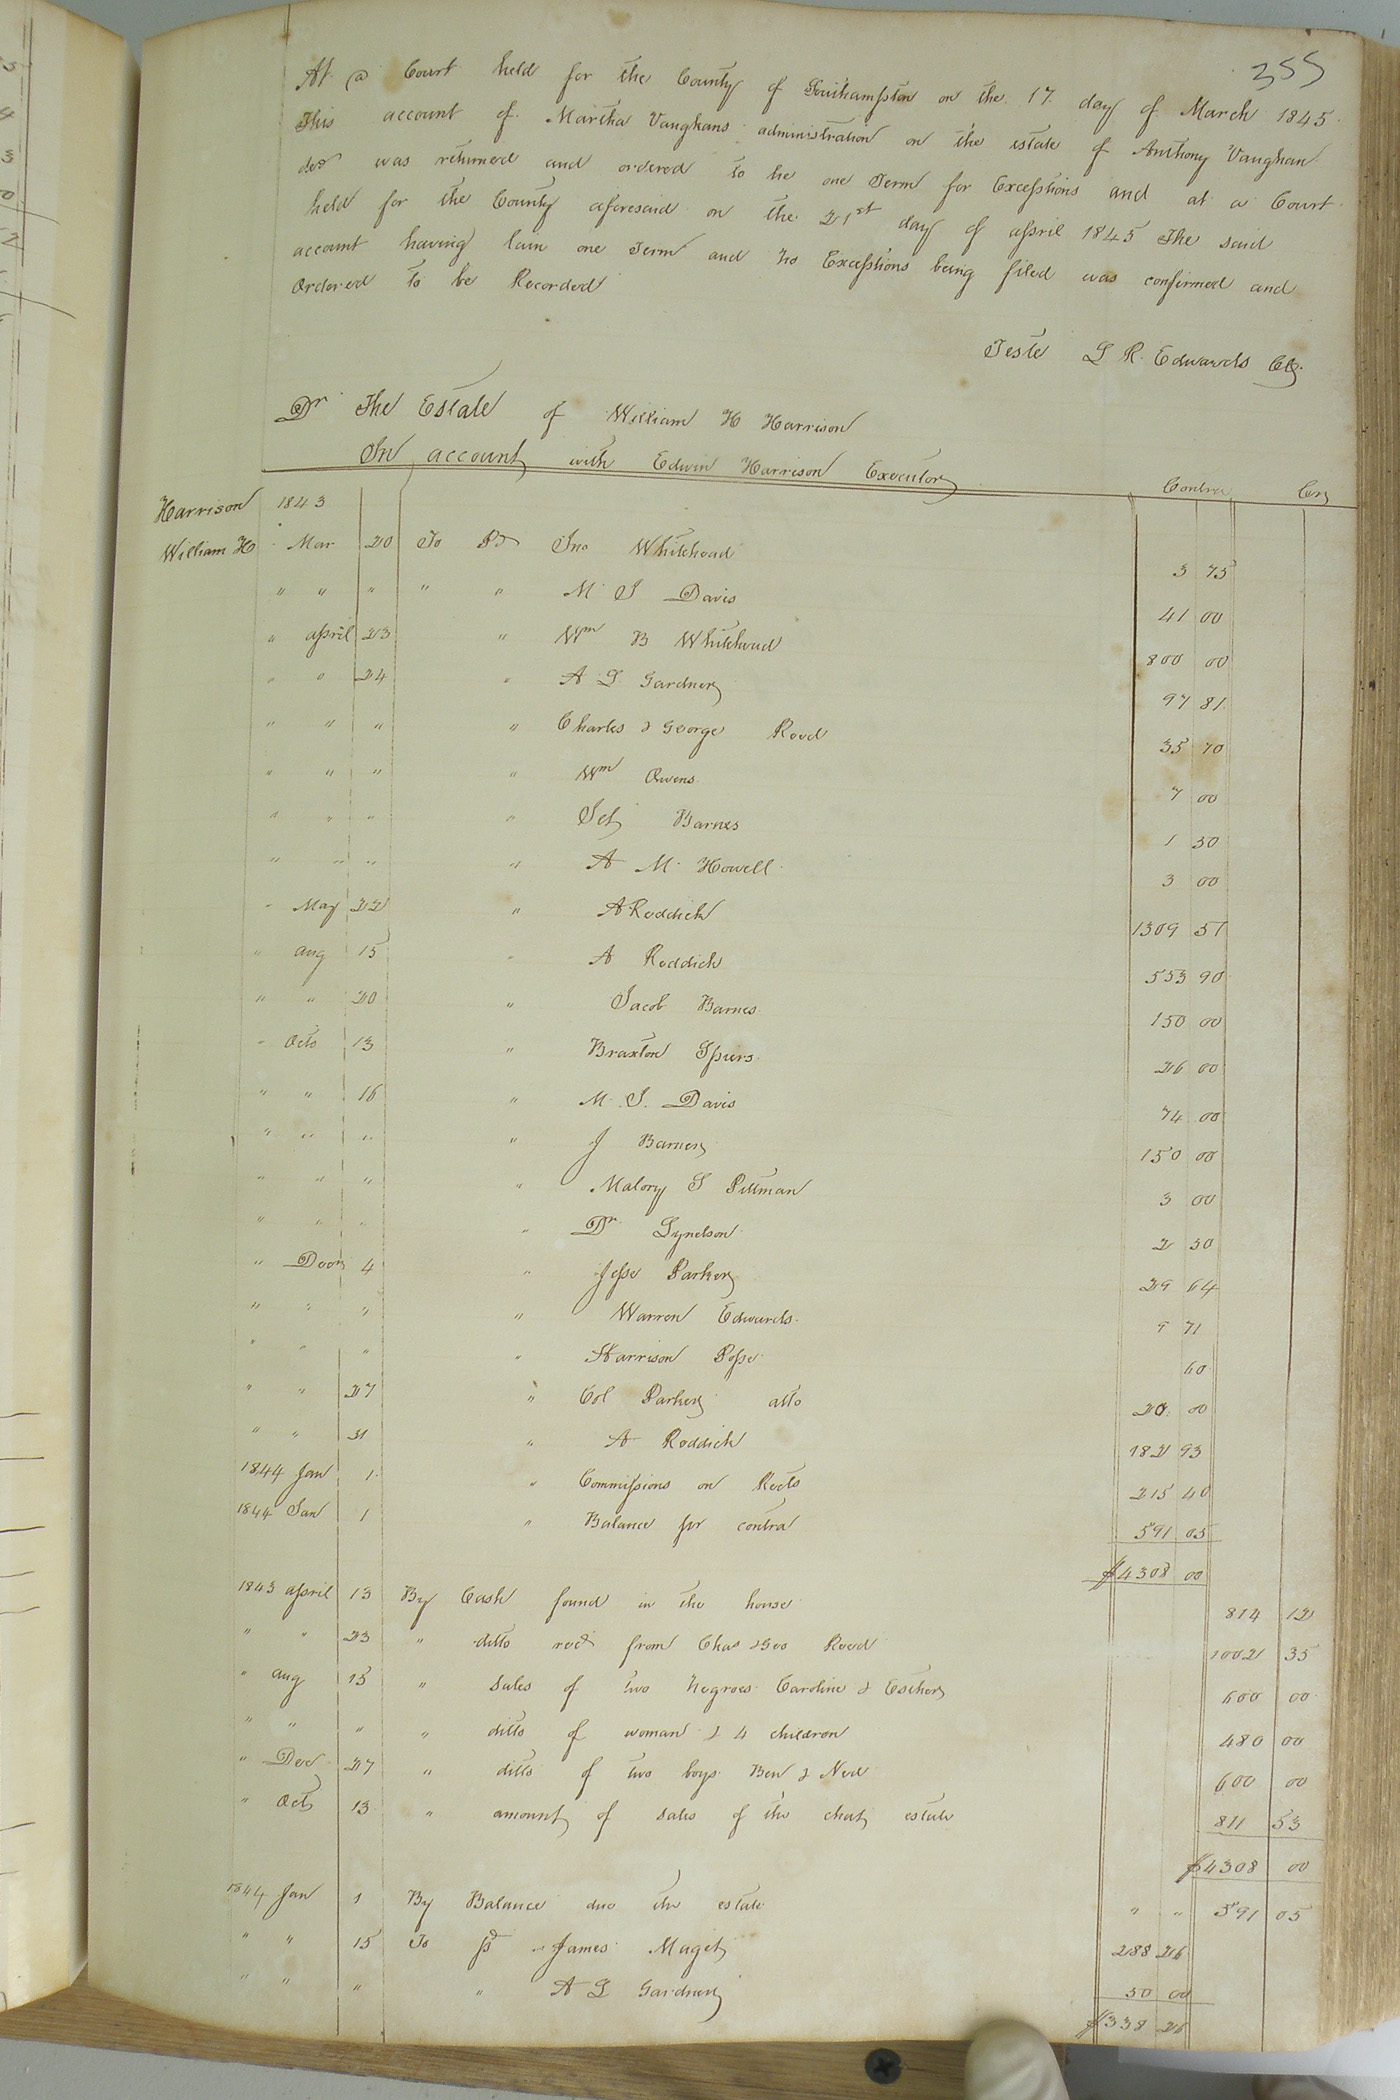 355
At a Court held for the County of Southampton on the 17 day of March 1845
This account of Martha Vaughans administration on the estate of Anthony Vaughan
decd was returned and ordered to lie one Term for Exceptions and at a Court
held for the County aforesaid on the 21st day of april 1845 The said
account having lain one Term and no Exceptions being filed was confirmed and
Ordered to be Recorded
Teste L R. Edwards Clk
Dr The Estate of William H Harrison
In account with Edwin Harrison Executor
Contra Cr
Harrison 1843
William H Mar 20 To Pd Jno Whitehead 3 75
" " " " " M. S Davis 41 00
" april 23 " Wm B Whitehead 800 00
" " 24 " A L Gardner 97 81
" " " " Charles & George Reed 35 70
" " " " Wm Owens 7 00
" " " " Barnes 1 50
" " " " A M. Howell 3 00
" May 22 " A Reddick 1309 51
" aug 15 " A Reddick 553 90
" " 20 " Jacob Barnes 150 00
" Octo 13 " Braxton Spiers 26 00
" " 16 " M. S. Davis 74 00
" " " " J Barnes 150 00
" " " " Malory S Pittman 3 00
" " " " Dr 2 50
" Decr 4 " Jesse Parker 29 64
" " " " Warren Edwards 9 71
" " " " Harrison Pope 60
" " 27 " Col Parker atto 20 00
" " 31 " A Reddick 182 93
1844 Jan 1 " Commissions on Rects 215 40
1844 Jan 1 " Balance pr contra 591 05
$4308 00
1843 april 13 By Cash found in the house 814 12
" " 23 " ditto recd from Chas & Geo Reed 1002 35
" aug 15 " sales of two negroes Caroline & Esther 600 00
" " " " ditto of woman & 4 children 480 00
" Dec 27 " ditto of two boys Ben & Ned 600 00
" Oct 13 " amount of sales of the estate 811 53
$4308 00
1844 Jan 1 By Balance due the estate " " 591 05
" " 15 To pd James Maget 288 26
" " " " A L Gardner 50 00
$338 26